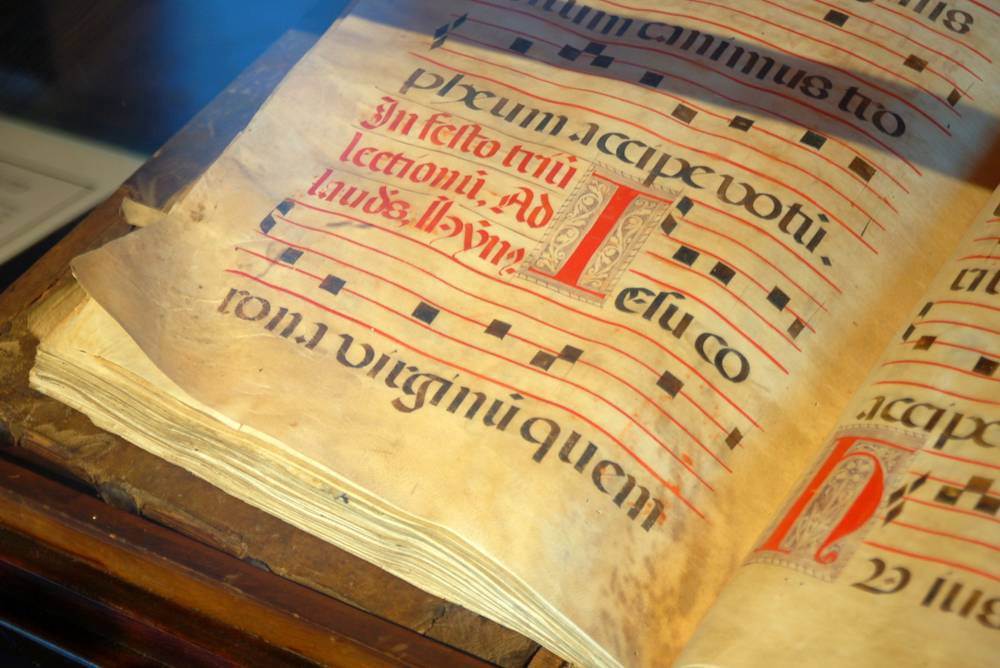 canimus trio
pheum accipe votũ.
In festo triũ
lectionũ, Ad
lauds, Hỹmꝰ
Iesu co
rona virginũ quem
accipe